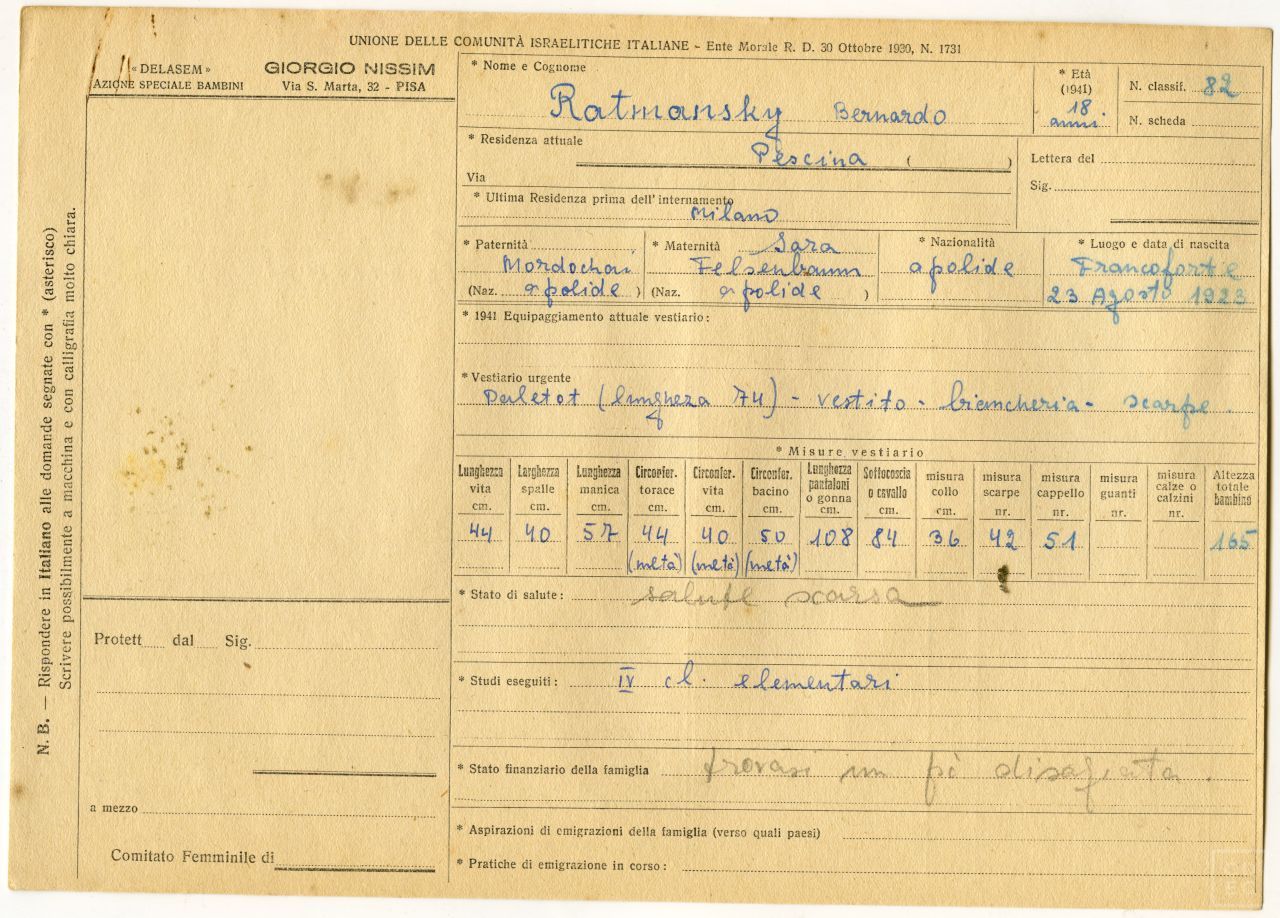 UNIONE DELLE COMUNITÀ ISRAELITICHE ITALIANE - Ente Morale R. D. 30 Ottobre 1930, N. 1731
« DELASEM »
AZIONE SPECIALE BAMBINI
GIORGIO NISSIM
Via S. Marta, 32 - PISA
N. B. — Rispondere in Italiano alle domande segnate con * (asterisco)
Scrivere possibilmente a macchina e con calligrafia molto chiara.
Protett dal Sig.
a mezzo
Comitato Femminile di
* Nome e Cognome
Ratmansky Bernardo
* Età
(1941)
18
anni
N. classif. 82
N. scheda
* Residenza attuale
Pescina ( )
Via
Lettera del
Sig.
* Ultima Residenza prima dell'internamento
Milano
* Paternità
Mordochai
(Naz. apolide )
* Maternità Sara
Felsenbaum
(Naz. apolide )
* Nazionalità
apolide
* Luogo e data di nascita
Francoforte
23 Agosto 1923
* 1941 Equipaggiamento attuale vestiario:
* Vestiario urgente
Paletot (lungheza 74) - vestito - biancheria - scarpe.
* Misure vestiario
Lunghezza vita cm. 44
Larghezza spalle cm. 40
Lunghezza manica cm. 57
Circonfer. torace cm. 44 (metà)
Circonfer. vita cm. 40 (metà)
Circonfer. bacino cm. 50 (metà)
Lunghezza pantaloni o gonna cm. 108
Sottocoscia o cavallo cm. 84
misura collo cm. 36
misura scarpe nr. 42
misura cappello nr. 51
misura guanti nr.
misura calze o calzini nr.
Altezza totale bambino 165
* Stato di salute: salute scarsa
* Studi eseguiti: IV cl. elementari
* Stato finanziario della famiglia trovasi un pò disagiata.
* Aspirazioni di emigrazioni della famiglia (verso quali paesi)
* Pratiche di emigrazione in corso: